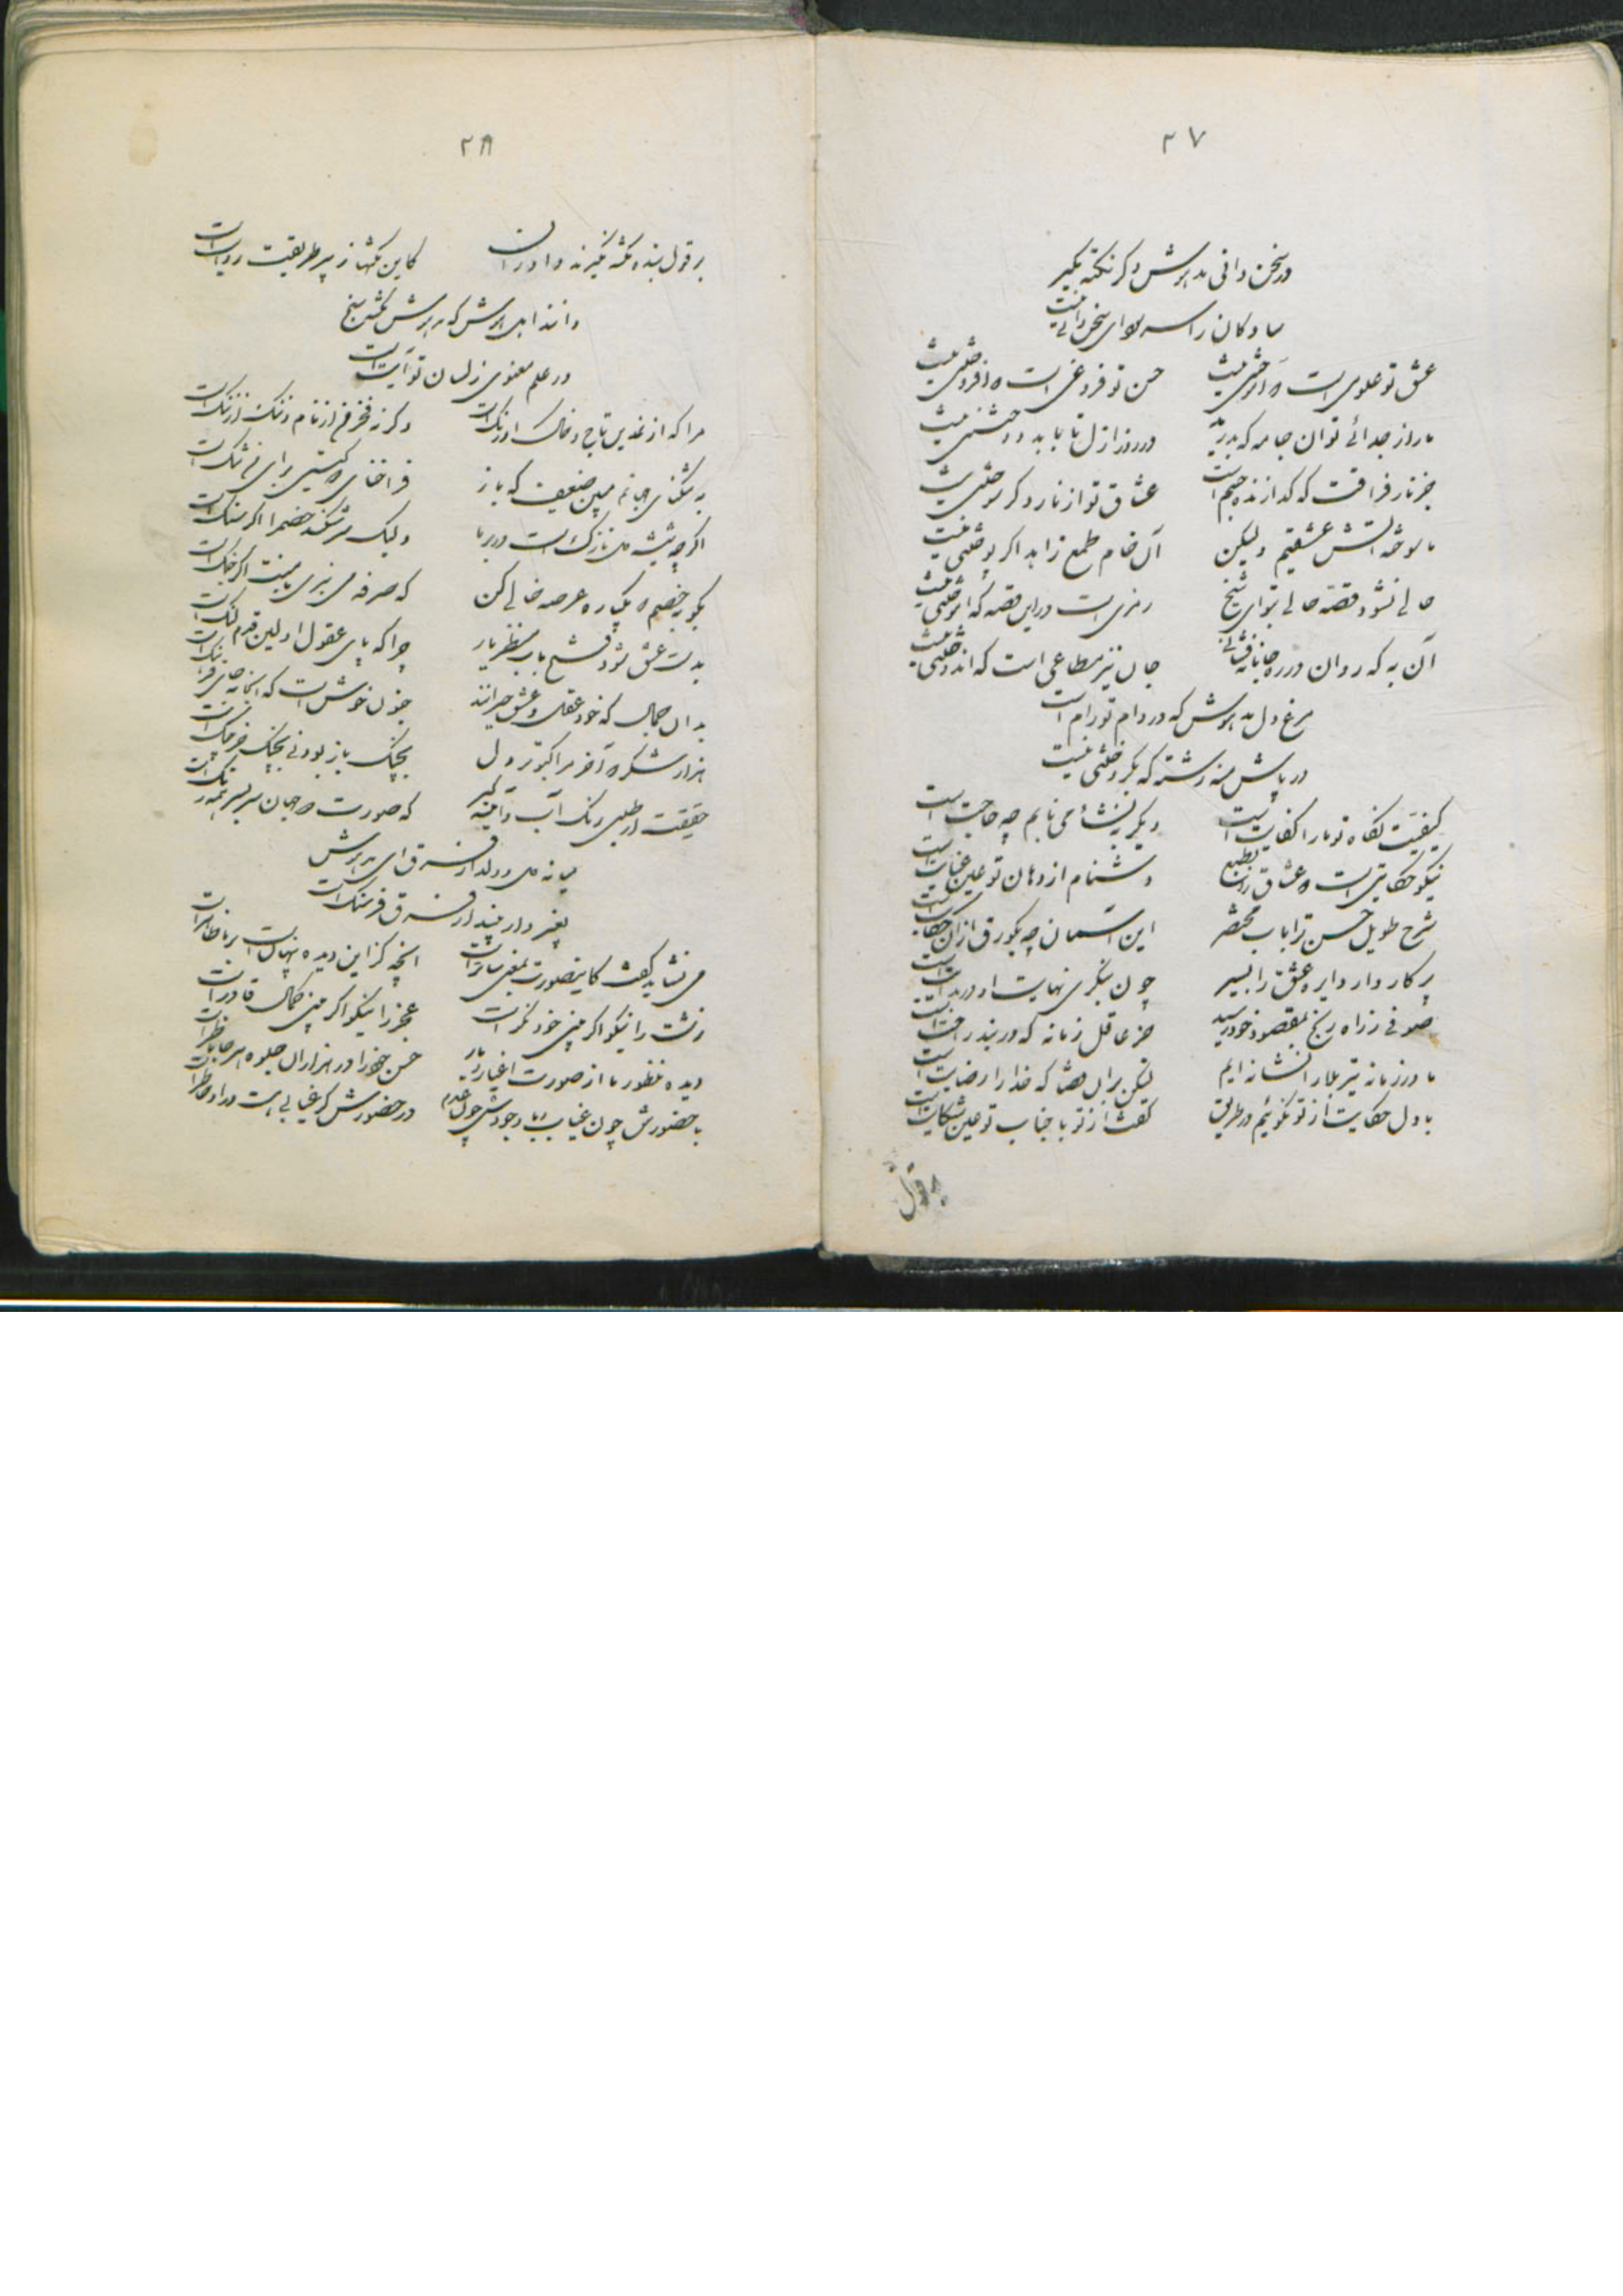 ۲۷
در سخن دانی مدهوش دگر نکته مگیر
سادگان را سر سودای سخن دانی نیست
عشق تو علوی است آموختنی نیست
حسن تو فروغی است افروختنی نیست
ما روز جدائی توان جامه که بدرید
در روز ازل تا بابد دوختنی نیست
جز نار فراقت که گدازنده جسم است
عشاق تو از نار دگر سوختنی نیست
ما سوخته آتش عشقیم ولیکن
آن خام طمع زاهد اگر سوختنی نیست
حالی نشود قصه حالی بتو ای شیخ
رمزی است در این قصه که آموختنی نیست
آن به که روان در ره جانانه فشانی
جان نیز متاعی است که اندوختنی نیست
مرغ دل مدهوش که در دام تو رام است
در پاش منه رشته که بگریختنی نیست
کیفیت نگاه تو ما را کفایت است
دیگر به نشأه می نابم چه حاجت است
نیکو حکایتی است عشاق را بطبع
دشنام از دهان تو عین عنایت است
شرح طویل حسن ترا باب مختصر
این آسمان چه یکورق از آن حکایت است
پرکار وار دایره عشق را بسیر
چون بنگری نهایت او در بدایت است
صوفی ز راه رنج بمقصود خود رسید
جز عاقل زمانه که در بند راحت است
ما در زمانه تیر بلا را نشانه ایم
لیکن بر آن قضا که خدا را رضایت است
با دل حکایت از تو نگوئیم در طریق
گفت از تو با جناب تو عین شکایت است
بر قول
۲۸
بر قول بنده نکته نگیرند
کاین نکتها ز پیر طریقت روایت است
دانند اهل هوش که مدهوش نکته سنج
در علم معنوی ز لسان تو آیت است
مرا که از نمدین تاج و خاک اورنگ است
وگرنه فخر من از نام و ننگ از ننگ است
به تنگنای جهانم مبین ضعیف که باز
فراخنای گیتی برای من تنگ است
اگر چه شیشه دل نازک است در بر ما
ولیک سر شکند خصم را اگر سنگ است
بگو بخصم یکباره عرصه خالی کن
که صرفه می نبری با منت اگر جنگ است
بدست عشق شود فتح باب منظر یار
چرا که پای عقول اولین قدم لنگ است
بدان جمال که خود عقل و عشق حیرانند
جنون خوش است که اینجا نه جای فرهنگ است
هزار شکر آخر مرا کبوتر دل
بچنگ باز بود نی بچنگ خرچنگ است
حقیقت ار طلبی رنگ آب و آئینه گیر
که صورت جهان سر بسر همه رنگ است
میانه دل و دلدار فرق ای مدهوش
بغیر دار چند از فرق فرسنگ است
می نشاید گفت کاینصورت بمعنی ساتر است
آنچه کز این دیده پنهان است بر ما ظاهر است
زشت را نیکو اگر بینی خود نکر است
عجز را نیکو اگر بینی کمال قادر است
دیده منظور ما از صورت اغیار و یار
حسن خود را در هزاران جلوه هر جا ناظر است
با حضورش چون غیاب ما وجودش چون عدم
در حضورش گر غیابی هست در او حاضر است